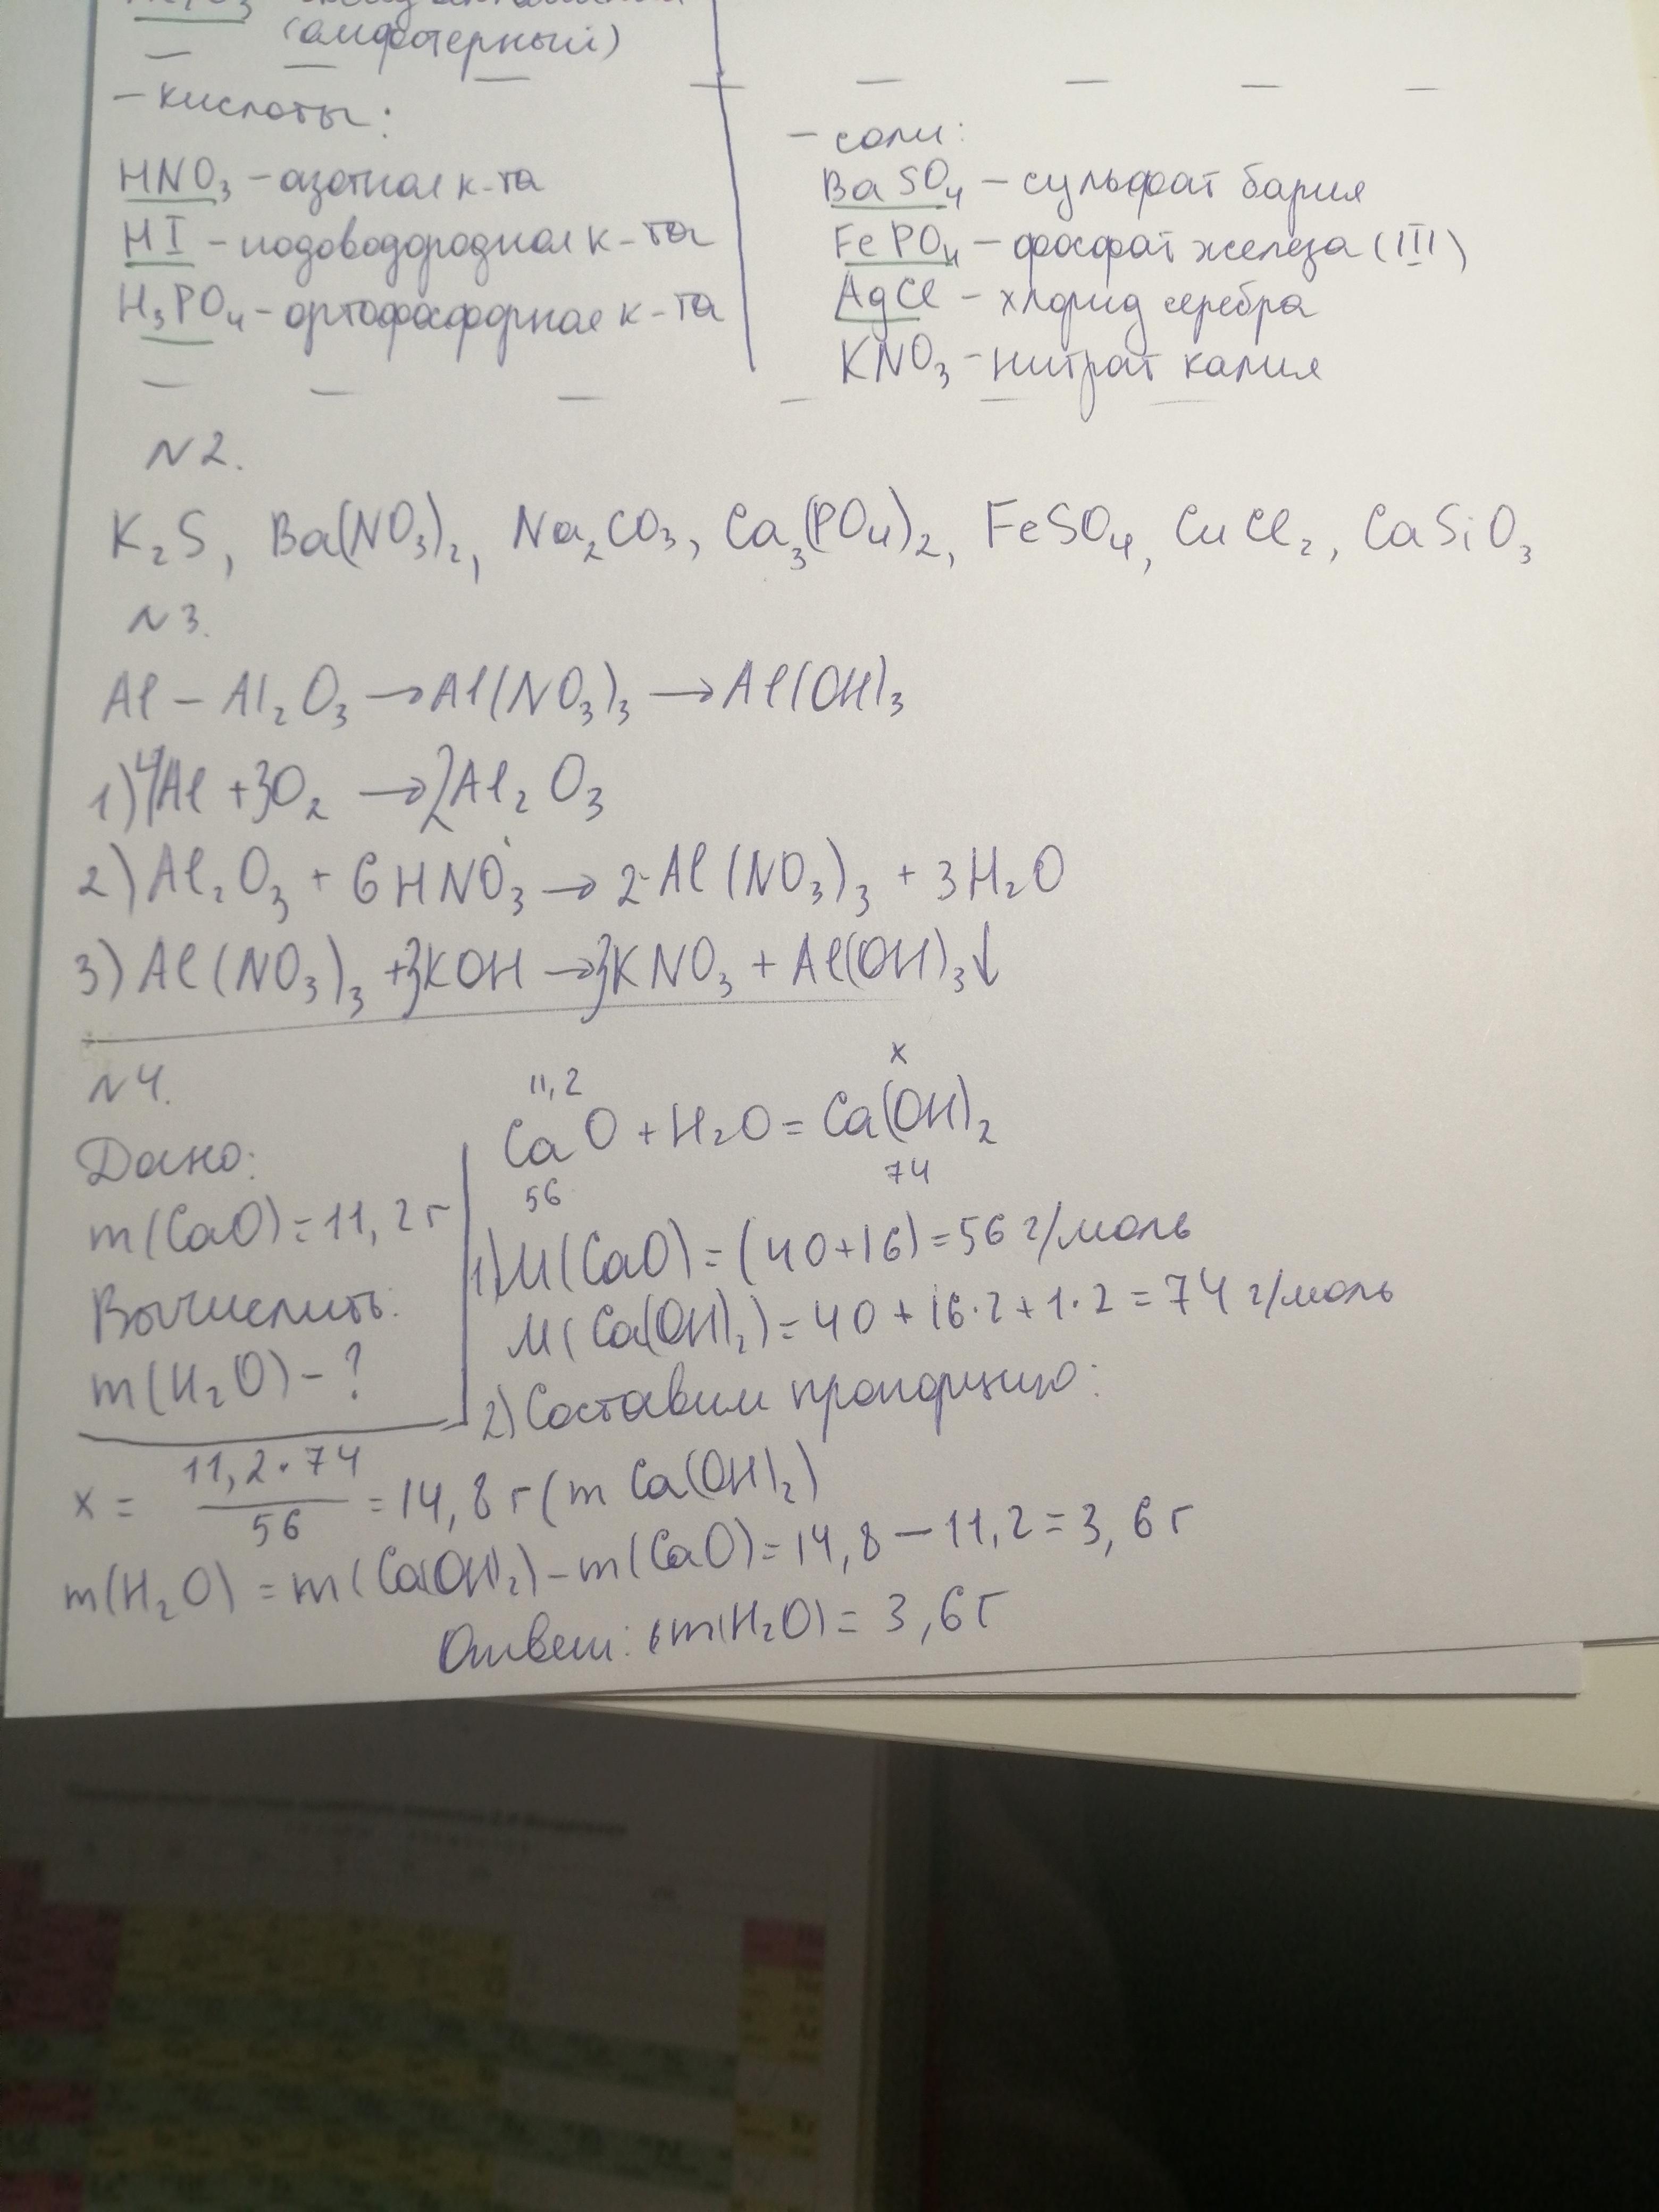 (амфотерный)
- кислоты:
HNO₃ - азотная к-та
HI - иодоводородная к-та
H₃PO₄ - ортофосфорная к-та
- соли:
BaSO₄ - сульфат бария
FePO₄ - фосфат железа (III)
AgCl - хлорид серебра
KNO₃ - нитрат калия
N2.
K₂S, Ba(NO₃)₂, Na₂CO₃, Ca₃(PO₄)₂, FeSO₄, CuCl₂, CaSiO₃
N3.
Al - Al₂O₃ → Al(NO₃)₃ → Al(OH)₃
1) 4Al + 3O₂ → 2Al₂O₃
2) Al₂O₃ + 6HNO₃ → 2Al(NO₃)₃ + 3H₂O
3) Al(NO₃)₃ + 3KOH → 3KNO₃ + Al(OH)₃↓
N4.
Дано:
m(CaO) = 11,2 г
Вычислить:
m(H₂O) - ?
11,2 x
CaO + H₂O = Ca(OH)₂
56 74
1) M(CaO) = (40+16) = 56 г/моль
M(Ca(OH)₂) = 40 + 16·2 + 1·2 = 74 г/моль
2) Составим пропорцию:
x = 11,2·74 / 56 = 14,8 г (m Ca(OH)₂)
m(H₂O) = m(Ca(OH)₂) - m(CaO) = 14,8 - 11,2 = 3,6 г
Ответ: m(H₂O) = 3,6 г